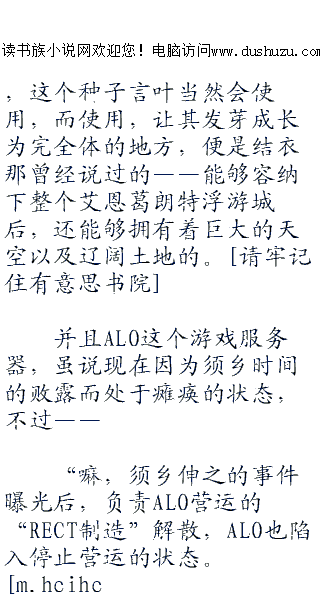 读书族小说网欢迎您！电脑访问www.dushuzu.com
，这个种子言叶当然会使
用，而使用，让其发芽成长
为完全体的地方，便是结衣
那曾经说过的——能够容纳
下整个艾恩葛朗特浮游城
后，还能够拥有着巨大的天
空以及辽阔土地的。[请牢记
住有意思书院]
并且ALO这个游戏服务
器，虽说现在因为须乡时间
的败露而处于瘫痪的状态，
不过——
“嘛，须乡伸之的事件
曝光后，负责ALO营运的
“RECT制造”解散，ALO也陷
入停止营运的状态。
[m.hcihc